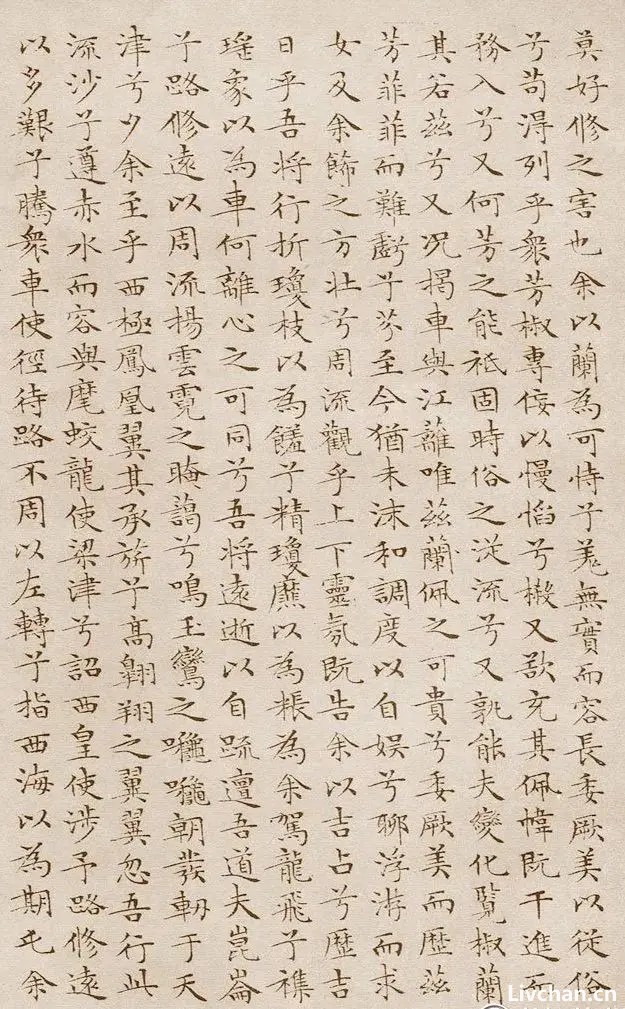 莫好修之害也余以蘭為可恃兮羌無實而容長委厥美以從俗
兮苟得列乎衆芳椒專佞以慢慆兮樧又欲充其佩幃既干進而
務入兮又何芳之能祗固時俗之從流兮又孰能夫變化覽椒蘭
其若茲兮又況揭車與江蘺唯茲蘭佩之可貴兮委厥美而歷茲
芳菲菲而難虧兮芬至今猶未沬和調度以自娛兮聊浮游而求
女及余飾之方壯兮周流觀乎上下靈氛既告余以吉占兮歷吉
日乎吾將行折瓊枝以為饈兮精瓊爢以為粻為余駕龍飛兮襍
瑤象以為車何離心之可同兮吾將遠逝以自疏邅吾道夫崑崙
兮路修遠以周流揚雲霓之晻藹兮鳴玉鸞之啾啾朝發軔于天
津兮夕余至乎西極鳳凰翼其承旂兮高翱翔之翼翼忽吾行此
流沙兮遵赤水而容與麾蛟龍使梁津兮詔西皇使涉予路修遠
以多艱兮騰衆車使徑待路不周以左轉兮指西海以為期屯余
Livchan.cn